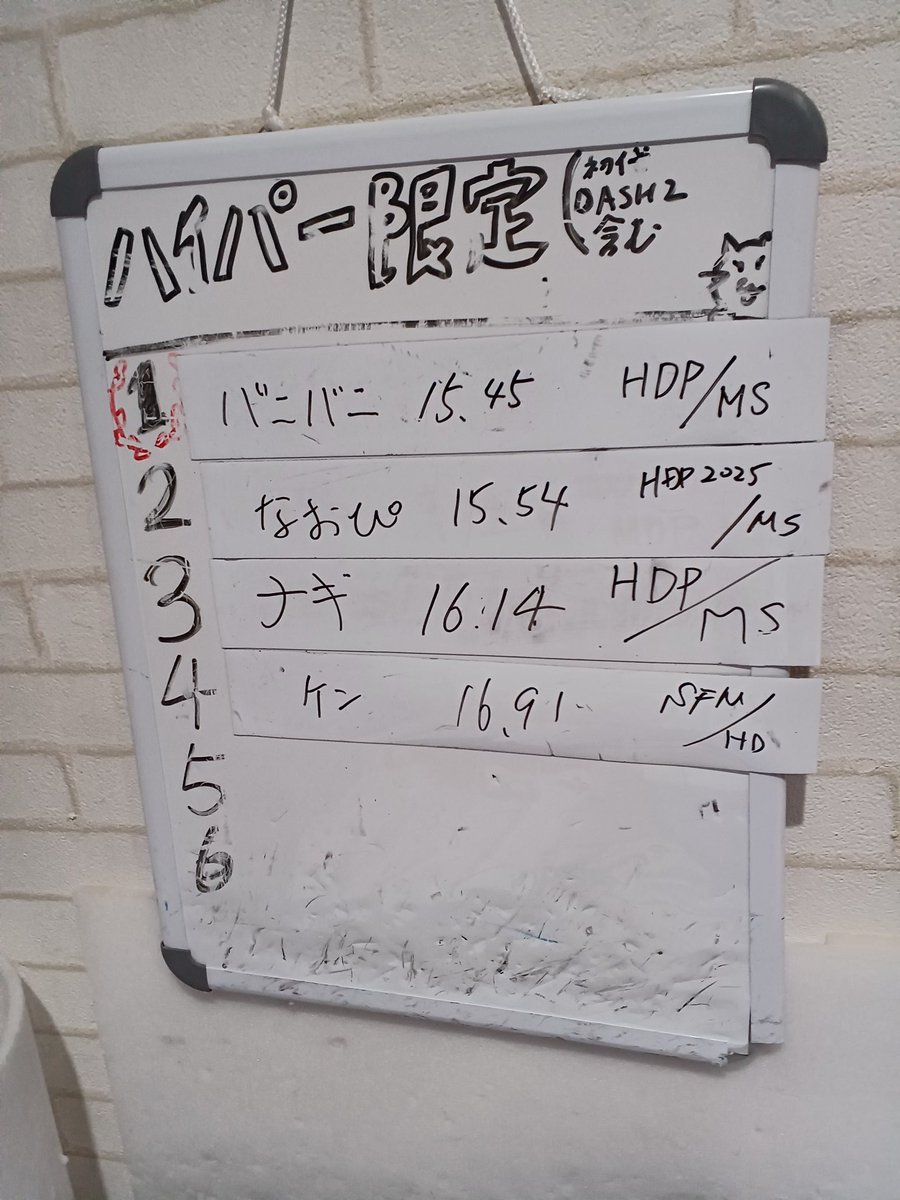 ハイパー限定
(初代
DASH2
含む
1 バニバニ 15.45 HDP/MS
2 なおぴ 15.54 HDP2025
/MS
3 ナギ 16.14 HDP/MS
4 ケン 16.91 SFM/HD
5
6